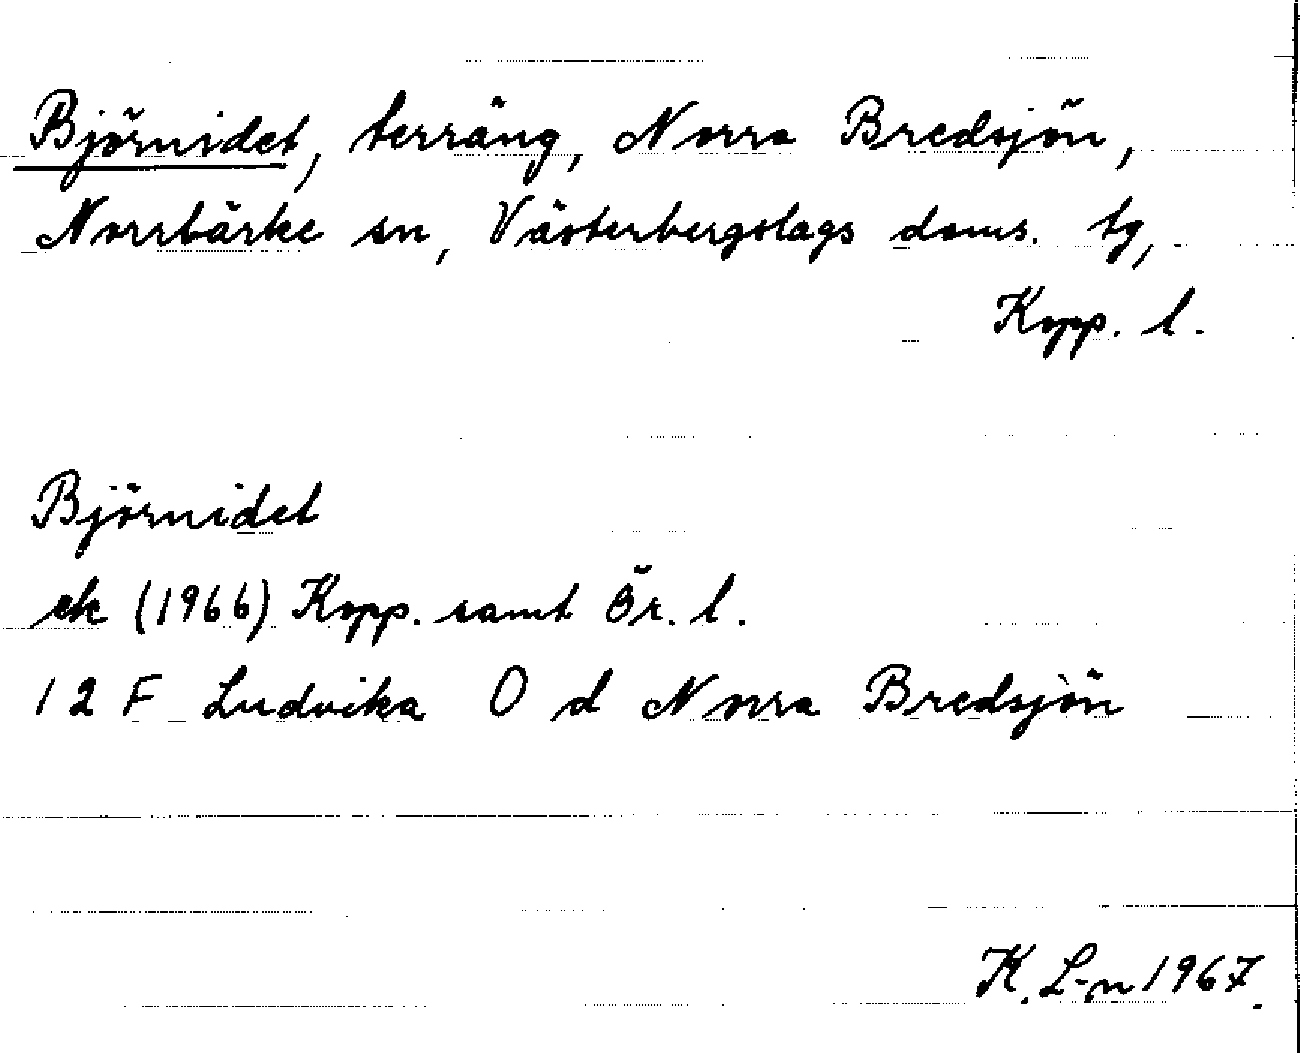 Björnidet, terräng, Norra Bredsjön,
Norrbärke sn, Västerbergslags doms. tg,
Kopp. l.
Björnidet
ek (1966) Kopp. samt Ör. l.
12 F Ludvika O d Norra Bredsjön
K. L-n 1967.